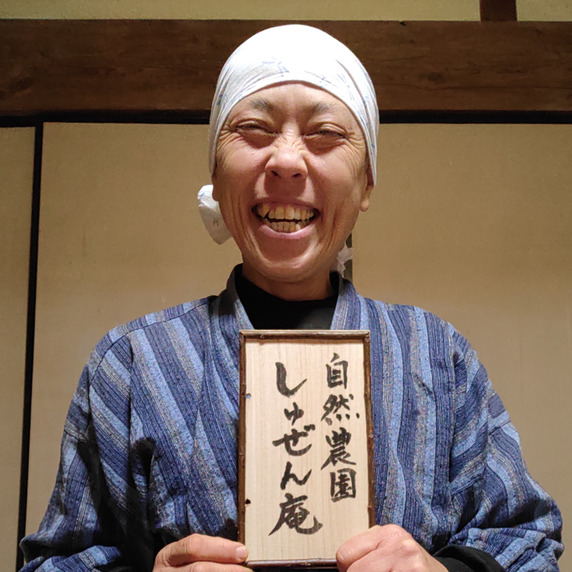 自然農園
しゅぜん庵